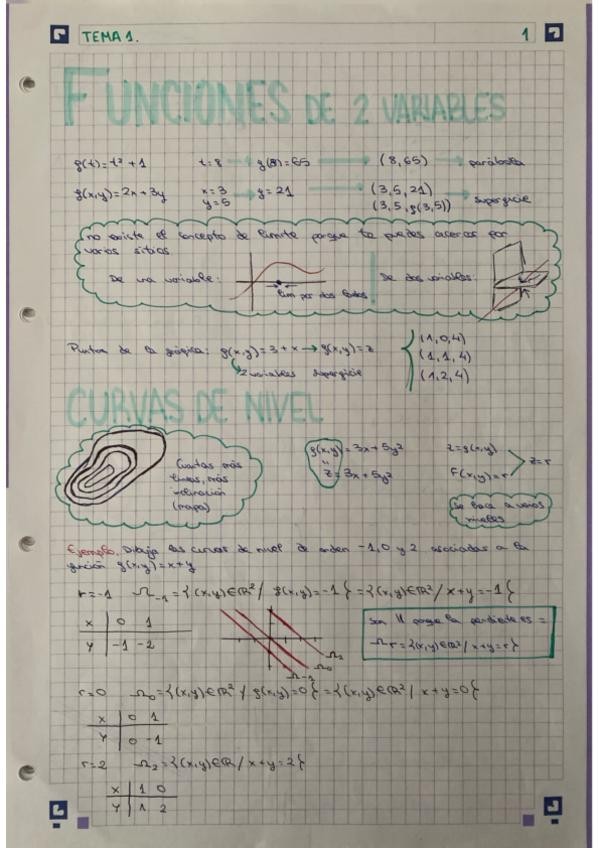 TEMA 1. 1
FUNCIONES DE 2 VARIABLES
f(t) = t² + 1 t=8 → f(8)=65 → (8,65) → parábola
f(x,y)=2x+3y x=3 y=5 → f=21 → (3,5,21) (3,5,f(3,5)) → superficie
no existe el concepto de límite porque te puedes acercar por
varios sitios.
De una variable: lim por dos lados De dos variables:
Puntos de la gráfica: f(x,y)=3+x → f(x,y)=z
2 variables superficie
(1,0,4)
(1,1,4)
(1,2,4)
CURVAS DE NIVEL
Cuantas más
líneas, más
inclinación
(mapa)
f(x,y)=3x+5y²
"
z=3x+5y²
z=f(x,y)
F(x,y)=r
z=r
Se hace a varios
niveles
Ejemplo. Dibuja las curvas de nivel de orden -1,0 y 2 asociadas a la
función f(x,y)=x+y
r=-1 Ω₋₁={(x,y)∈ℝ²/ f(x,y)=-1}={(x,y)∈ℝ²/x+y=-1}
X 0 1
Y -1 -2
Ω₂
Ω₀
Ω₋₁
Son // porque la pendiente es =
Ωr={(x,y)∈ℝ²/x+y=r}
r=0 Ω₀={(x,y)∈ℝ²/ f(x,y)=0}={(x,y)∈ℝ²/ x+y=0}
X 0 1
Y 0 -1
r=2 Ω₂={(x,y)∈ℝ/x+y=2}
X 1 0
Y 1 2